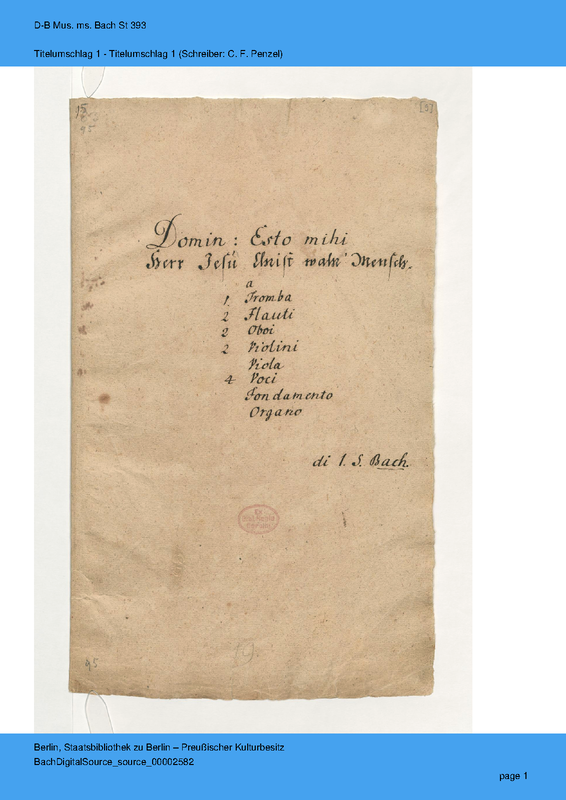 D-B Mus. ms. Bach St 393
Titelumschlag 1 - Titelumschlag 1 (Schreiber: C. F. Penzel)
[9]
95
Domin: Esto mihi
Herr Jesu Christ wahr' Mensch.
a
1 Tromba
2 Flauti
2 Oboi
2 Violini
Viola
4 Voci
Fondamento
Organo
di I. S. Bach.
95
Berlin, Staatsbibliothek zu Berlin – Preußischer Kulturbesitz
BachDigitalSource_source_00002582
page 1